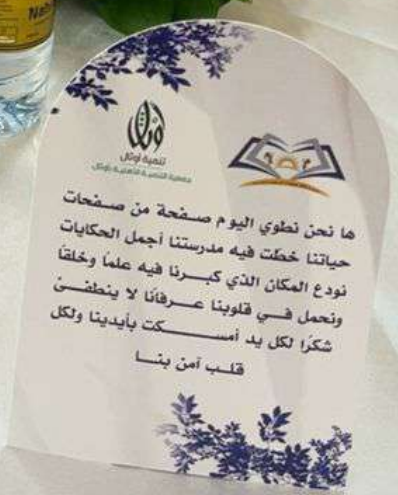 Na
تنمية أوثال
جمعية التنمية الأهلية بأوثال
ها نحن نطوي اليوم صفحة من صفحات
حياتنا خطّت فيه مدرستنا أجمل الحكايات
نودع المكان الذي كبرنا فيه علمًا وخلقًا
ونحمل في قلوبنا عرفانًا لا ينطفئ
شكرًا لكل يد أمسكت بأيدينا ولكل
قلب آمن بنا